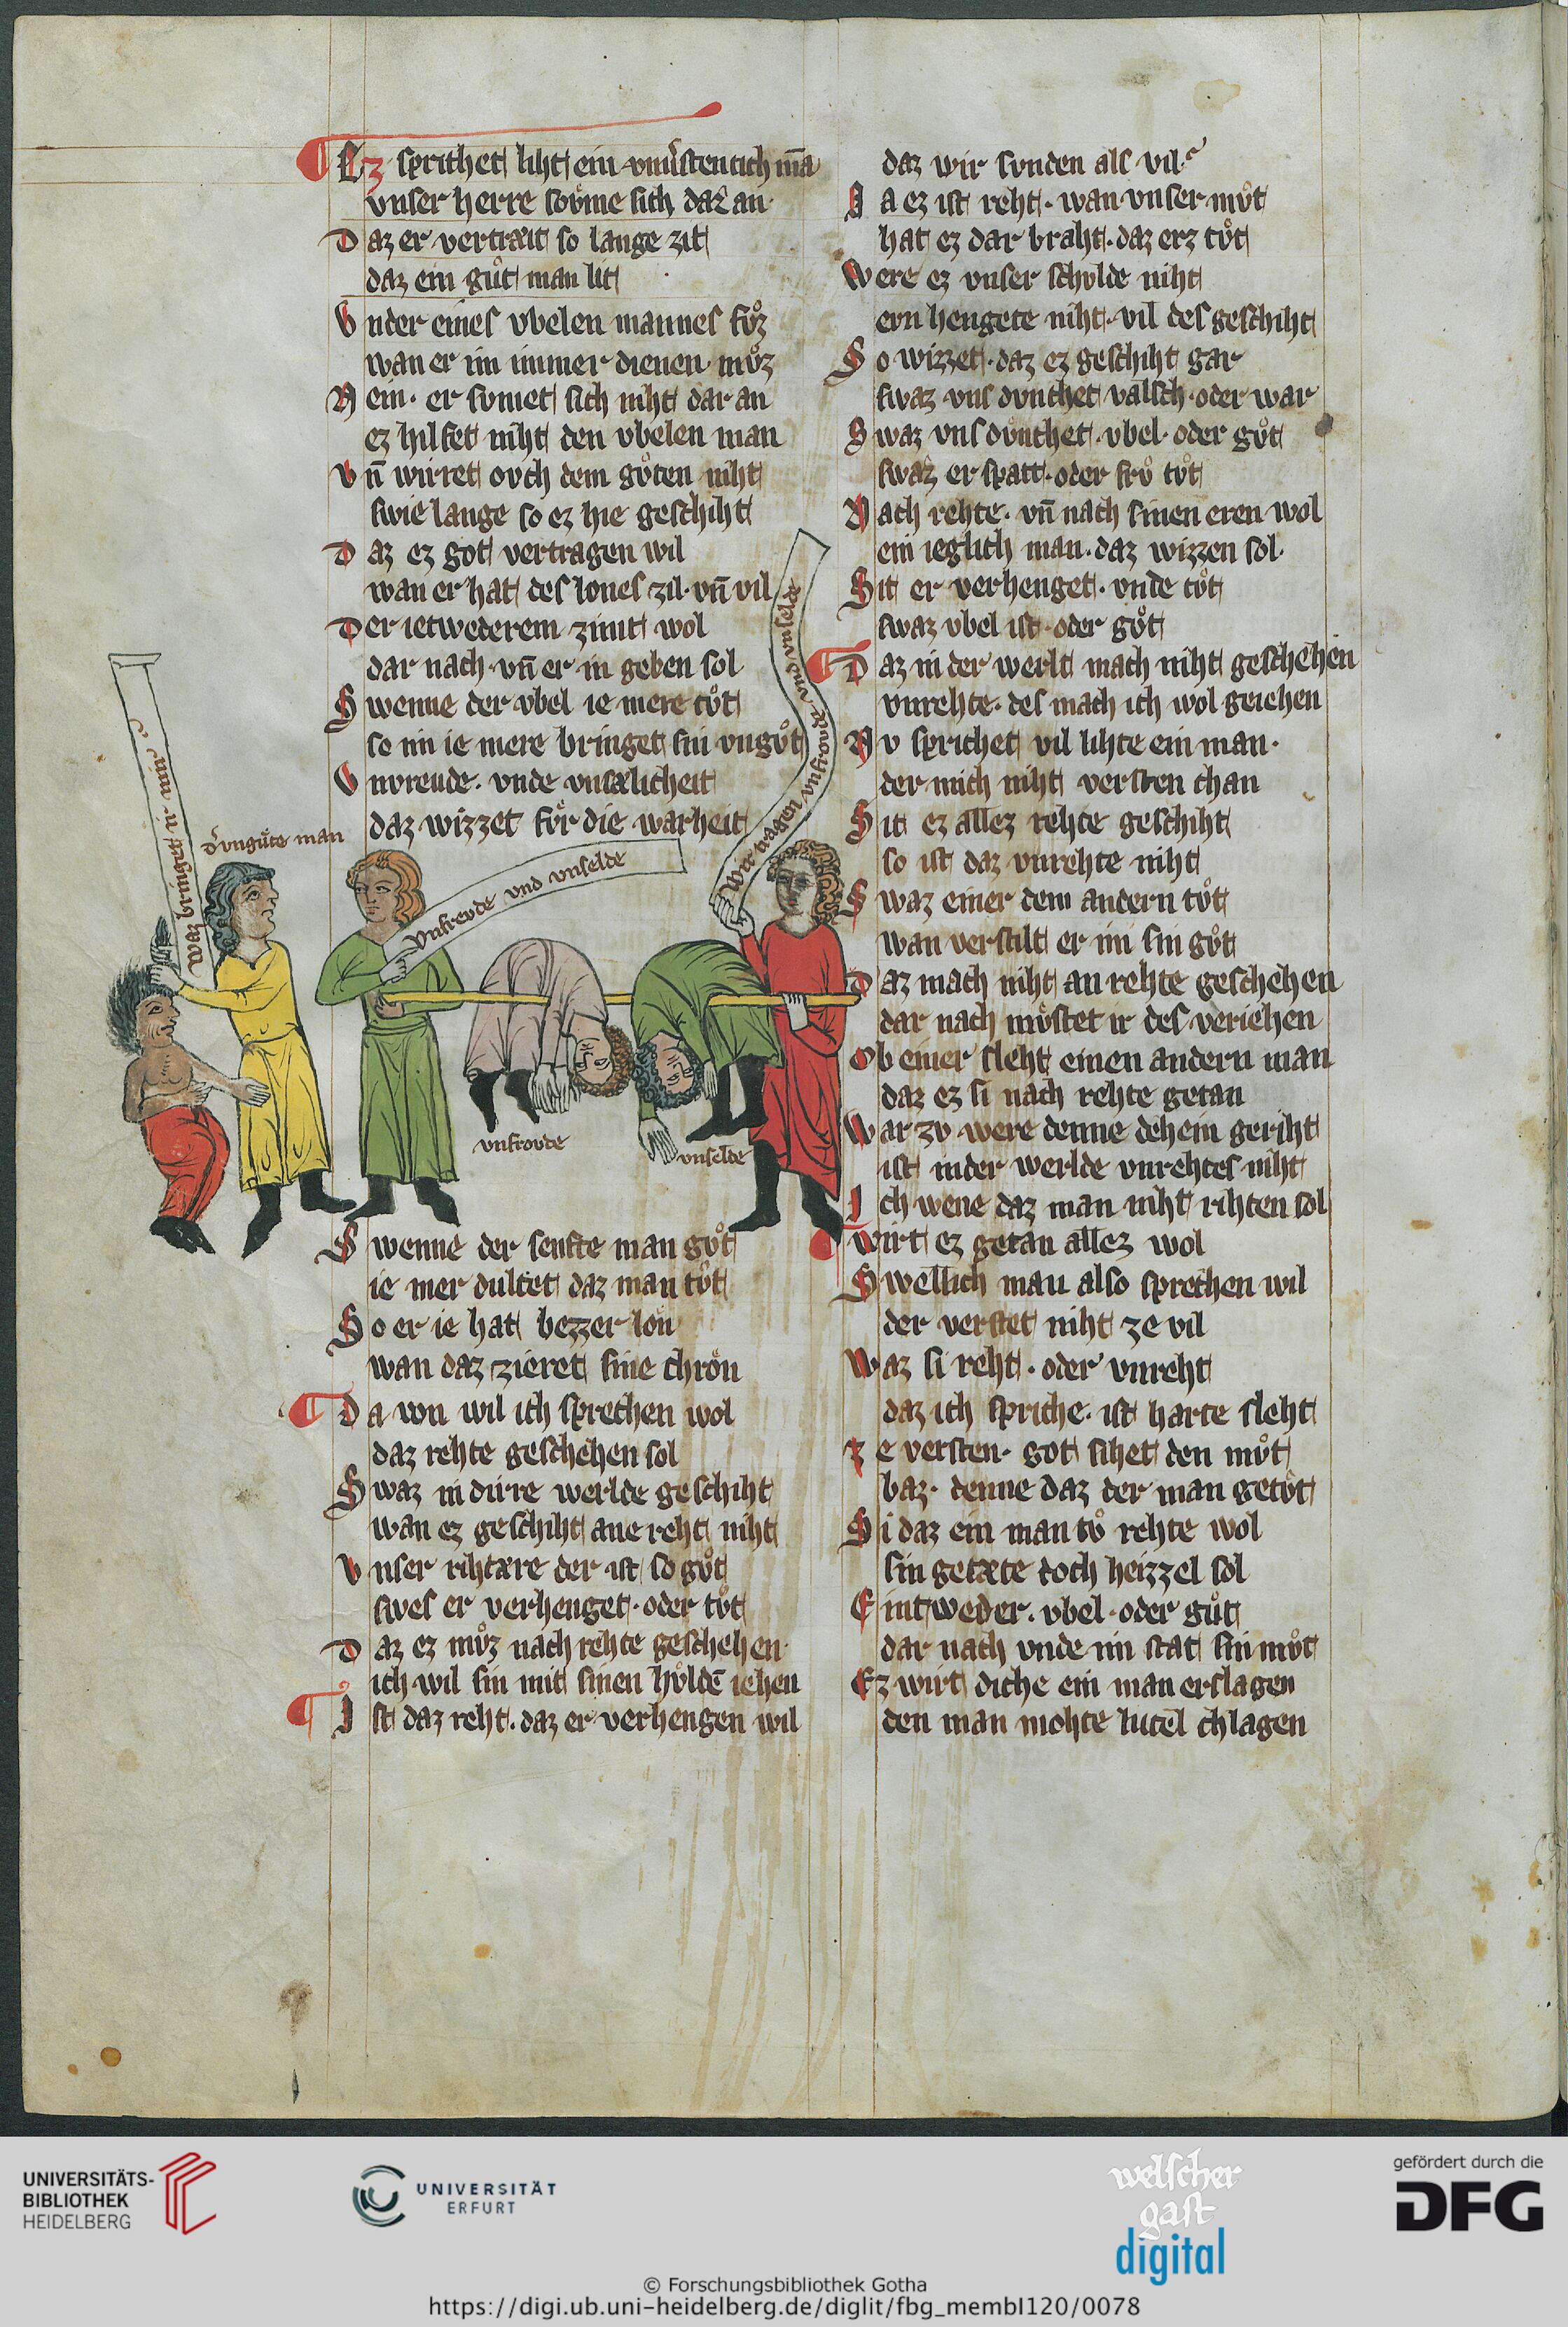 Ez sprichet liht ein unv̾stentich mā
vnser herre sovme sich dar an·
Daz er vertrait so lange zit
daz ein guͦt man lit
Vnder eines vbelen mannes fvͦz
wan er im immer dienen muͦz
Nein· er svmet sich niht dar an
ez hilfet niht den vbelen man
Vn̄ wirret ovch dem gvͦten niht
swie lange so ez hie geschiht
Daz ez got vertragen wil
wan er hat des lones zil· vn̄ vil
Der ietwederem zimt wol
dar nach· vn̄ er in geben sol
Swenne der vbel ie mere tvͦt
so im ie mere bringet sin vngvͦt
Vnvreude· vnde vnsælicheit
daz wizzet fvͦr die warheit
waz bringet ir mir
d̾ vnguͦte man
Vnfrevde vnd vnselde
wir tragen vnfrovde vnd vnselde
vnfrovde
vnselde
Swenne der senfte man gvͦt
ie mer dultet daz man tvͦt
So er ie hat bezzer lon
wan daz zieret sine chron
Da von wil ich sprechen wol
daz rehte geschehen sol
Swaz in dirre werlde geschiht
wan ez geschiht ane reht niht
Vnser rihtære der ist so gvͦt
swes er verhenget· oder tvͦt
Daz ez mvͦz nach rehte geschehen·
ich wil sin mit sinen hvͦldē iehen
Ist daz reht· daz er verhengen wil
daz wir svnden als vil·
Ia ez ist reht· wan vnser mvͦt
hat ez dar braht· daz erz tvͦt
Were ez vnser schvlde niht
ern hengete niht· vil des geschiht
So wizzet· daz ez geschiht gar
swaz vns dvnchet valsch· oder war
Swaz vns dvnchet· vbel· oder gvͦt
swaz er spatt· oder frvͦ tvͦt
Nach rehte· vn̄ nach sinen eren wol
ein ieglich man· daz wizzen sol·
Sit er verhenget· vnde tvͦt
swaz vbel ist· oder gvͦt
Daz in der werlt mach niht geschehen
vnrehte· des mach ich wol geiehen
Nv sprichet vil lihte ein man·
der mich niht versten chan
Sit ez allez rehte geschiht
so ist daz vnrehte niht
Swaz einer dem andern tvͦt
wan verstilt er im sin gvͦt
Daz mach niht an rehte geschehen
dar nach mvͦstet ir des veriehen
Ob einer sleht einen andern man
daz ez si nach rehte getan
War zv were denne dehein geriht
ist in der werlde vnrehtes niht
Ich wene daz man niht rihten sol
wirt ez getan allez wol
Swellich man also sprechen wil
der verstet niht ze vil
Waz si reht· oder vnreht
daz ich spriche· ist harte sleht
Ze versten· got sihet den mvͦt
baz· denne daz der man getvͦt
Si daz ein man tvͦ rehte wol
sin getæte doch heizzel sol
Eintweder· vbel· oder guͦt
dar nach vnde im stat sin mvͦt
Ez wirt diche ein man erslagen
den man mohte lutel chlagen
UNIVERSITÄTS-
BIBLIOTHEK
HEIDELBERG
UNIVERSITÄT
ERFURT
welscher
gast
digital
gefördert durch die
DFG
© Forschungsbibliothek Gotha
https://digi.ub.uni-heidelberg.de/diglit/fbg_membI120/0078